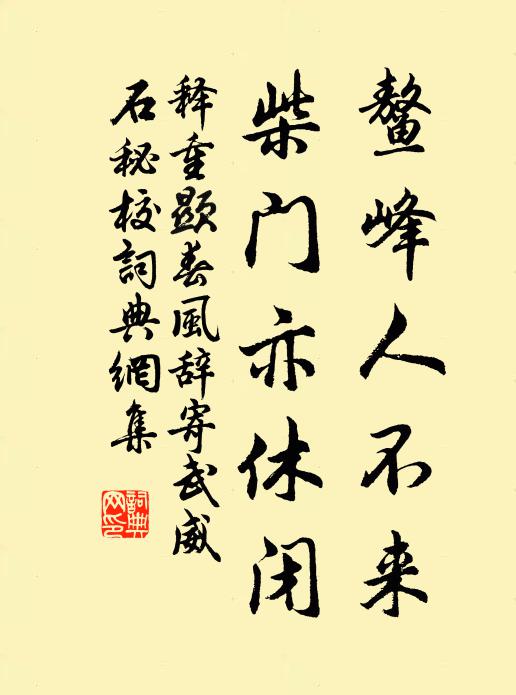 鳌峰人不来
柴门亦休闭
释重顕春风辞寄武威
石秘校词典網集
詞典
网印